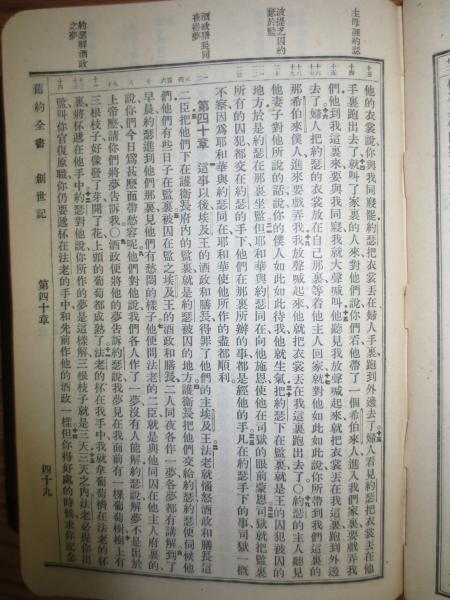 主母誣約瑟
波提乏囚約
瑟於監
酒政膳長同
夜得夢
約瑟解酒政
之夢
他的衣裳說、你與我同寢罷、約瑟把衣裳丟在婦人手裏、跑到外邊去了、婦人看見約瑟把衣裳丟在他
手裏跑出去了、就叫了家裏的人來、對他們說、你們看、他帶了一個希伯來人、進入我們家裏、要戲弄我
們、他到我這裏來、要與我同寢、我就大聲喊叫、他聽見我放聲喊起來、就把衣裳丟在我這裏、跑到外邊
去了、婦人把約瑟的衣裳放在自己那裏、等着他主人回家、就對他如此如此說、你所帶到我們這裏的
那希伯來僕人、進來要戲弄我、我放聲喊起來、他就把衣裳丟在我這裏跑出去了○約瑟的主人聽見
他妻子對他所說的話、說你的僕人如此如此待我、他就生氣、把約瑟下在監裏、就是王的囚犯被囚的
地方、於是約瑟在那裏坐監、但耶和華與約瑟同在、向他施恩、使他在司獄的眼前蒙恩、司獄就把監裏
所有的囚犯、都交在約瑟的手下、他們在那裏所辦的事、都是經他的手、凡在約瑟手下的事、司獄一概
不察、因爲耶和華與約瑟同在、耶和華使他所作的盡都順利、
第四十章 這事以後、埃及王的酒政和膳長、得罪了他們的主埃及王、法老就惱怒酒政和膳長這
二臣、把他們下在護衛長府內的監裏、就是約瑟被囚的地方、護衛長把他們交給約瑟、約瑟便伺候他
們、他們有些日子在監裏、被囚在監之埃及王的酒政和膳長、二人同夜各作一夢、各夢都有講解、到了
早晨、約瑟進到他們那裏、見他們有愁悶的樣子、他便問法老的二臣、就是與他同囚在他主人府裏的、
說、你們今日爲甚麼面帶愁容呢、他們對他說、我們各人作了一夢、沒有人能解、約瑟說、解夢不是出於
上帝麼、請你們將夢告訴我○酒政便將他的夢告訴約瑟說、我夢見在我面前有一棵葡萄樹、樹上有
三根枝子、好像發了芽、開了花、上頭的葡萄都成熟了、法老的杯在我手中、我就拿葡萄擠在法老的杯
裏、將杯遞在他手中、約瑟對他說、你所作的夢是這樣解、三根枝子就是三天、三天之內、法老必提你出
監、叫你官復原職、你仍要遞杯在法老的手中、和先前作他的酒政一樣、但你得好處的時候、求你記念
舊約全書 創世記
第四十章
四十九